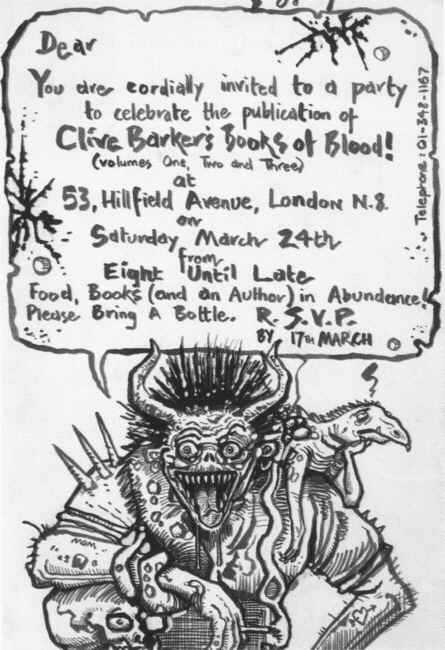 Dear
You are cordially invited to a party
to celebrate the publication of
Clive Barker's Books of Blood!
(volumes One, Two and Three)
at
53, Hillfield Avenue, London N.8.
on
Saturday March 24th
from
Eight Until Late
Food, Books (and an Author) in Abundance!
Please Bring A Bottle. R.S.V.P.
BY 17TH MARCH
Telephone: 01-348-1167
MOM